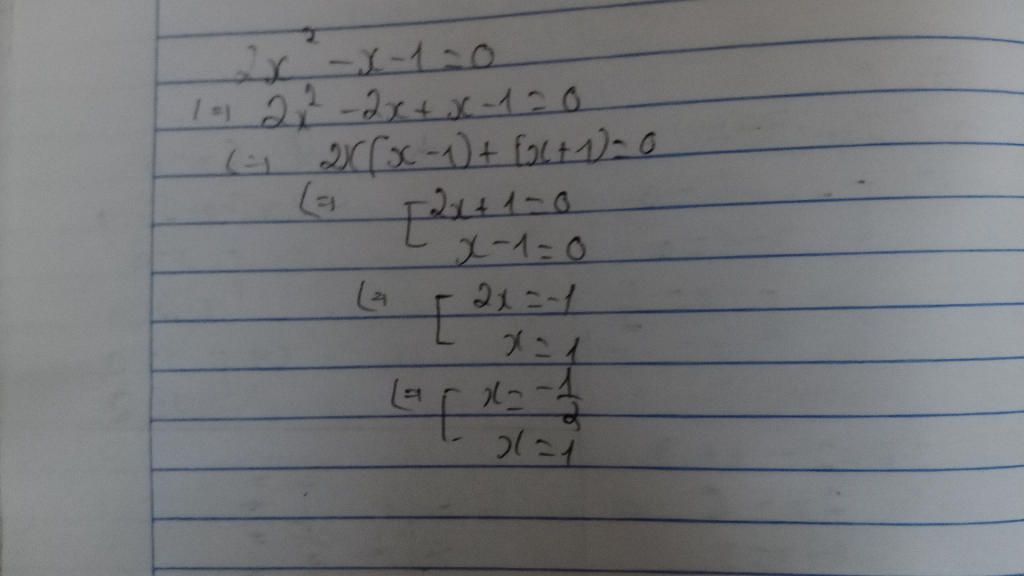 2x² - x - 1 = 0
(=) 2x² - 2x + x - 1 = 0
(=) 2x(x - 1) + (x + 1) = 0
(=) [ 2x + 1 = 0
x - 1 = 0
(=) [ 2x = -1
x = 1
(=) [ x = -1/2
x = 1